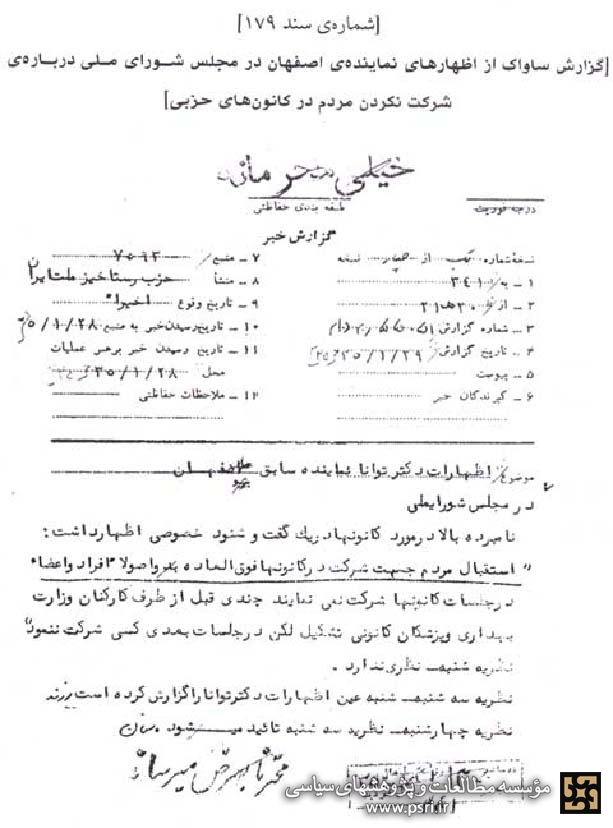 [شماره‌ی سند ۱۷۹]
[گزارش ساواک از اظهارهای نماینده‌ی اصفهان در مجلس شورای ملی درباره‌ی
شرکت نکردن مردم در کانون‌های حزبی]
خیلی محرمانه
درجه فوریت
طبقه بندی حفاظتی
گزارش خبر
نسخه شماره یک از چهار نسخه
۱ ـ به ۳۴۱
۲ ـ از
۳ ـ شماره گزارش
۴ ـ تاریخ گزارش ۳۵/۱/۲۹
۵ ـ پیوست
۶ ـ گیرندگان خبر
۷ ـ منبع ۷۵۶۳
۸ ـ منشأ حزب رستاخیز ملت ایران
۹ ـ تاریخ وقوع اخیرا"
۱۰ ـ تاریخ رسیدن خبر به منبع ۳۵/۱/۲۸
۱۱ ـ تاریخ رسیدن خبر برهبر عملیات
محل ۳۵/۱/۲۸
۱۲ ـ ملاحظات حفاظتی
موضوع : اظهارات دکتر توانا نماینده سابق اصفهان
در مجلس شورایملی
نامبرده بالا در مورد کانونها در یک گفت و شنود خصوصی اظهار داشت :
" استقبال مردم جهت شرکت در کانونها فوق العاده بد و اصولا" افراد و اعضا"
در جلسات کانونها شرکت نمی نمایند چندی قبل از طرف کارکنان وزارت
بهداری و پزشکان کانونی تشکیل لکن در جلسات بعدی کسی شرکت ننمود"
نظریه شنبه ـ نظری ندارد .
نظریه سه شنبه ـ شنبه عین اظهارات دکتر توانا را گزارش کرده است
نظریه چهارشنبه ـ نظریه سه شنبه تائید میشود .
محترماً بعرض میرساند
مؤسسه مطالعات و پژوهشهای سیاسی
www.psri.ir